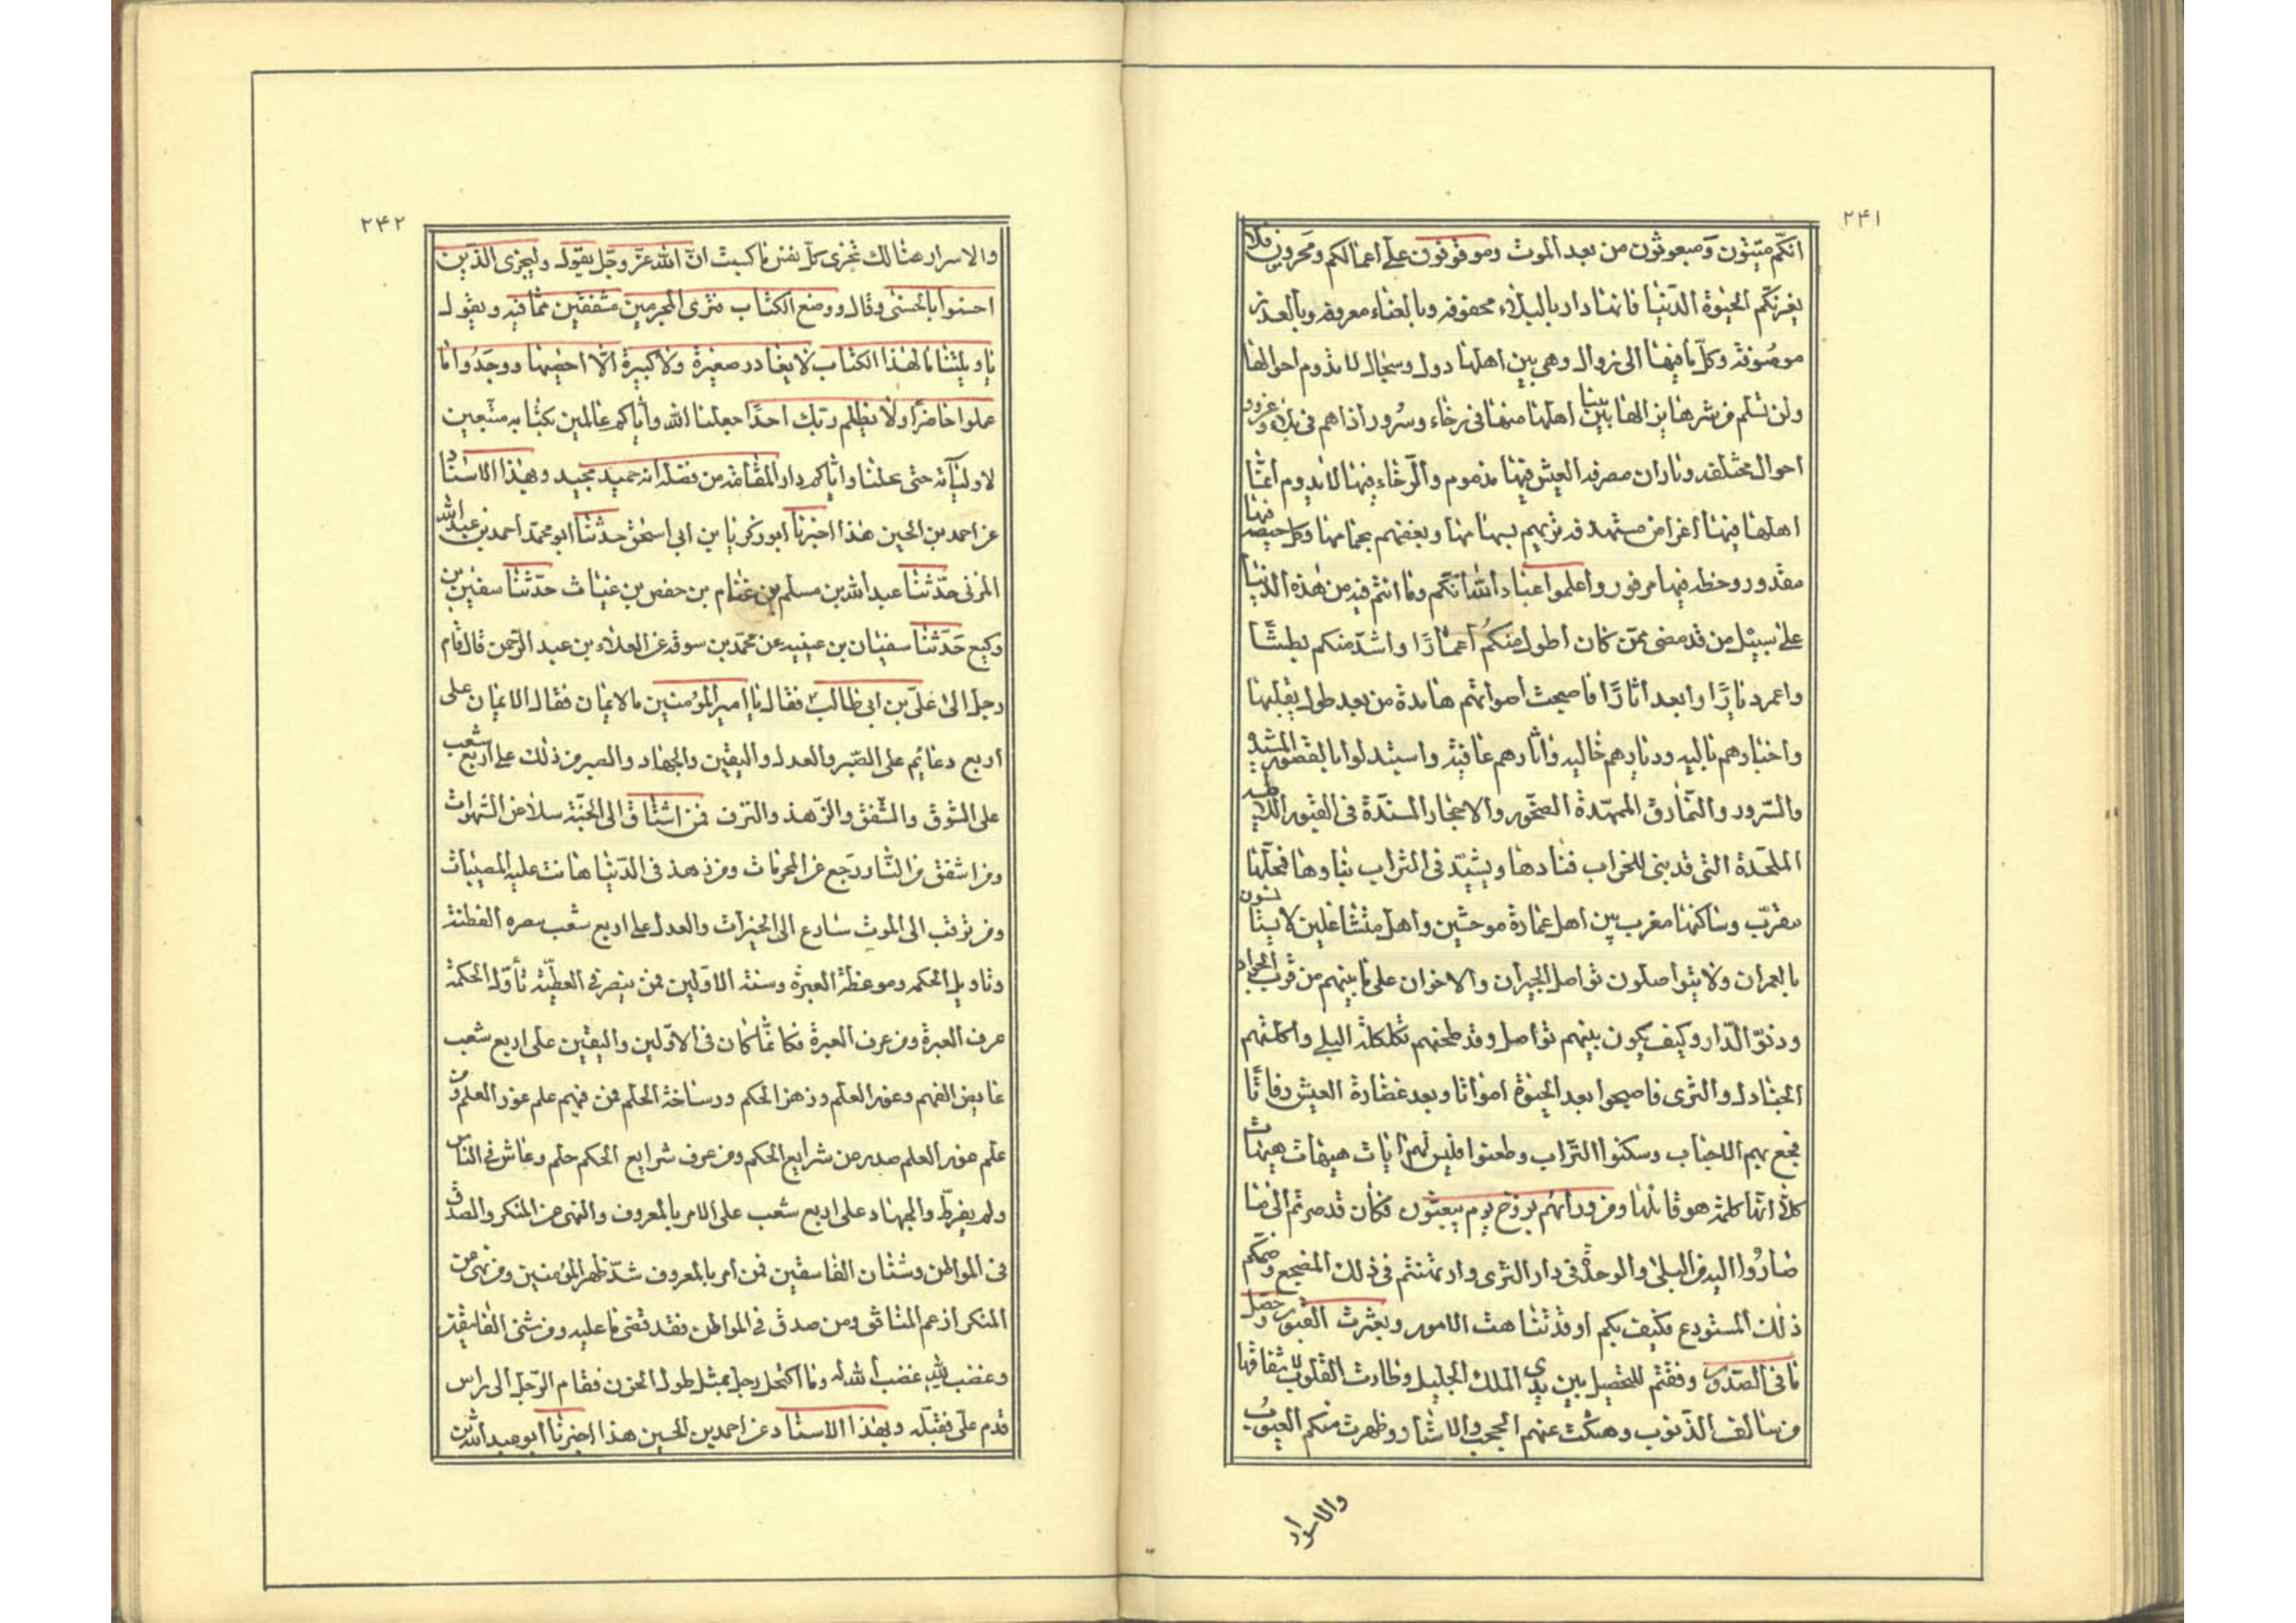 ٢۴١
انكم ميتون ومبعوثون من بعد الموت وموقوفون على أعمالكم ومجزيون فلا
يغرنكم الحيوة الدنيا فانها دار بالبلاء محفوفه وبالعناء معروفة وبالغدر
موصوفة وكل ما فيها الى زوال وهى بين اهلها دول وسجال لا تدوم احوالها
ولن تسلم من شرها نزالها بينا اهلها منها فى رخاء وسرور اذا هم فى بلاء وغرور
احوال مختلفه وتاران مصرفه العيش فيها مذموم والرخاء فيها لا يدوم انما
اهلها فيها اغراض مستهدفه ترميهم بسهامها وبعضهم بحمامها وكل حتفه فيها
مقدور وحظه فيها مرفور واعلموا عباد الله انكم وما انتم فيه من هذه الدنيا
على سبيل من قد مضى ممن كان اطول منكم اعمارًا واشد منكم بطشًا
واعمر ديارًا وابعد اثارًا فاصبحت اصواتهم هامدة من بعد طول تقلبها
واجسادهم باليه وديارهم خاليه واثارهم عافية واستبدلوا بالقصور المشيده
والسرور والنمارق الممهدة الصخور والاحجار المسندة فى القبور اللاطيه
الملحدة التى قد بنى للخراب فنادها ويشيد فى التراب بناوها فمحلها
مقرب وساكنها مغرب بين اهل عمارة موحشين واهل متشاغلين لا يستانسون
بالعمران ولا يتواصلون تواصل الجيران والاخوان على ما بينهم من قرب الجوار
ودنو الدار وكيف يكون بينهم تواصل وقد طحنهم بكلكله البلى واكلتهم
الجنادل والثرى فاصبحوا بعد الحيوة امواتا وبعد غضارة العيش رفاتًا
فجع بهم الاحباب وسكنوا التراب وظعنوا فليس لهم اياب هيهات هيهات
كلا انها كلمة هو قائلها ومن ورائهم برزخ يوم يبعثون فكأن قد صرتم الى ما
صاروا اليه من البلى والوحدة فى دار الثرى وارتهنتم فى ذلك المضجع وضمكم
ذلك المستودع فكيف بكم او قد تناهت الامور وبعثرت القبور وحصل
ما فى الصدور ووقفتم للتحصيل بين يدى الملك الجليل وطارت القلوب لاشفاقها
من سالف الذنوب وهتكت عنهم الحجب والاستار وظهرت منكم العيوب
والاسرار
٢۴٢
والاسرار هنالك تجزى كل نفس ما كسبت ان الله عز وجل يقول وليجزى الذين
احسنوا بالحسنى وقال ووضع الكتاب فترى المجرمين مشفقين مما فيه ويقول
يا ويلتنا ما لهذا الكتاب لا يغادر صغيرة ولا كبيرة الا احصيها ووجدوا ما
عملوا حاضرًا ولا يظلم ربك احدًا جعلنا الله واياكم عاملين بكتابه متبعين
لاوليائه حتى يحلنا واياكم دار المقامة من فضله انه حميد مجيد وبهذا الاسناد
عن احمد بن الحسين هذا اخبرنا ابو زكريا بن ابى اسحق حدثنا ابو محمد احمد بن عبد الله
المزنى حدثنا عبد الله بن مسلم بن غنام بن حفص بن غياث حدثنا سفين بن
وكيع حدثنا سفيان بن عيينه عن محمد بن سوقه عن العلاء بن عبد الرحمن قال قام
رجل الى على بن ابى طالب فقال يا امير المؤمنين ما الايمان فقال الايمان على
اربع دعائم على الصبر والعدل واليقين والجهاد والصبر من ذلك على اربع شعب
على الشوق والشفق والزهد والترف فمن اشتاق الى الجنة سلا عن الشهوات
ومن اشفق من النار رجع عن المحرمات ومن زهد فى الدنيا هانت عليه المصيبات
ومن ترقب الى الموت سارع الى الخيرات والعدل على اربع شعب بصره الفطنة
وتاويل الحكمه وموعظة العبرة وسنة الاولين فمن تبصر فى العطية تأول الحكمة
عرف العبرة ومن عرف العبرة فكانما كان فى الاولين واليقين على اربع شعب
غايص الفهم وغور العلم وزهر الحكم ورساخة الحلم فمن فهم علم غور العلم ومن
علم غور العلم صدر عن شرايع الحكم ومن عرف شرايع الحكم حلم وعاش فى الناس
ولم يفرط والجهاد على اربع شعب على الامر بالمعروف والنهى عن المنكر والصدق
فى المواطن وشنان الفاسقين فمن امر بالمعروف شد ظهر المؤمنين ومن نهى عن
المنكر ازعم المنافق ومن صدق فى المواطن فقد قضى ما عليه ومن شنى الفاسقين
وغضب لله غضب الله له وما اكتحل رجل بمثل طول الحزن فقام الرجل الى راس
قدم على فقبله وبهذا الاسناد عن احمد بن الحسين هذا اخبرنا ابو عبد الله بن